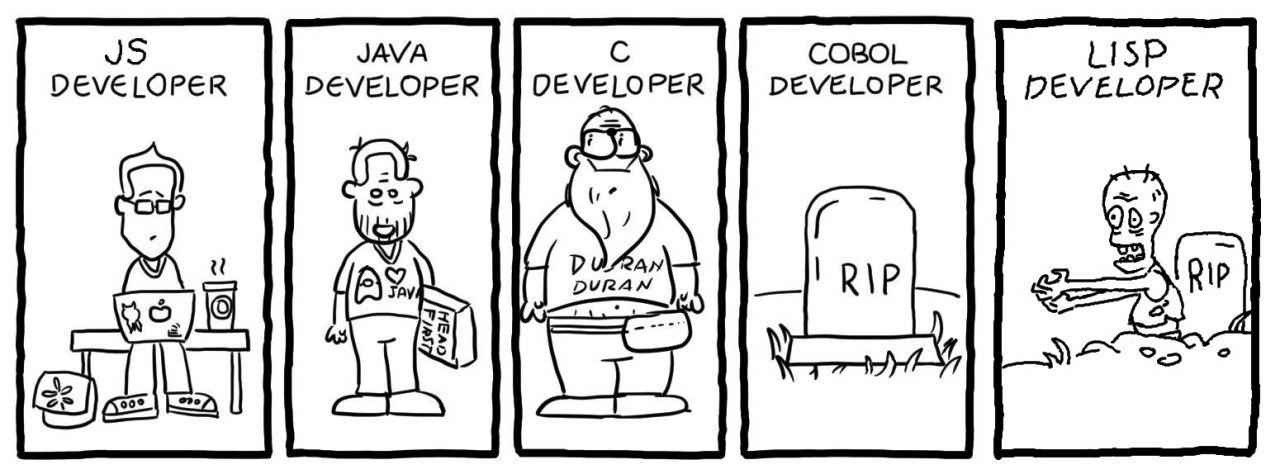 JS
DEVELOPER
JAVA
DEVELOPER
JAVA
HEAD
FIRST
C
DEVELOPER
DURAN
DURAN
COBOL
DEVELOPER
RIP
LISP
DEVELOPER
RIP